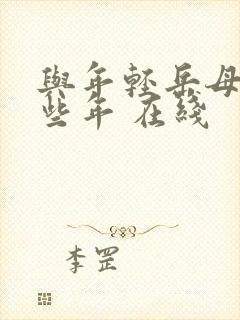 與年輕岳母
些年 在綫
李罡